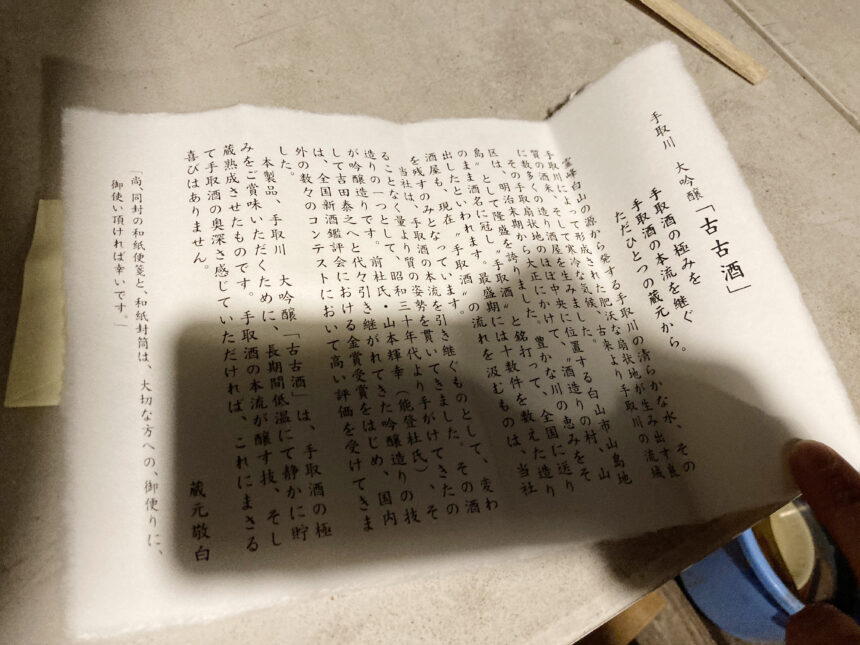 手取川　大吟醸「古古酒」
手取酒の極みを
手取酒の本流を継ぐ。
ただひとつの蔵元から。
霊峰白山の源から発する手取川の清らかな水、その
手取川によって形成された肥沃な扇状地が生み出す良
質の酒米、そして寒冷な気候、古来より手取川の流域
に数多くの造り酒屋を生みました。
その手取扇状地のほぼ中央に位置する白山市山島地
区は、明治末期から大正にかけて、〝酒造りの村、山
島〟として隆盛を誇りました。豊かな川の恵みをそ
のまま酒名に冠し、〝手取酒〟と銘打って、全国に送り
出したといわれます。最盛期には十数件を数えた造り
酒屋も、現在〝手取酒〟の流れを汲むものは、当社
を残すのみとなっています。
当社は、手取酒の本流を引き継ぐものとして、変わ
ることなく量より質の姿勢を貫いてきました。その酒
造りの一つとして、昭和三十年代より手がけてきたの
が吟醸造りです。前杜氏・山本輝幸（能登杜氏）、そ
して吉田泰之へと代々引き継がれてきた吟醸造りの技
は、全国新酒鑑評会における金賞受賞をはじめ、国内
外の数々のコンテストにおいて高い評価を受けてきま
した。
本製品、手取川　大吟醸「古古酒」は、手取酒の極
みをご賞味いただくために、長期間低温にて静かに貯
蔵熟成させたものです。手取酒の本流が醸す技、そし
て手取酒の奥深さ感じていただければ、これにまさる
喜びはありません。
蔵元敬白
「尚、同封の和紙便箋と、和紙封筒は、大切な方への、御便りに、
御使い頂ければ幸いです。」